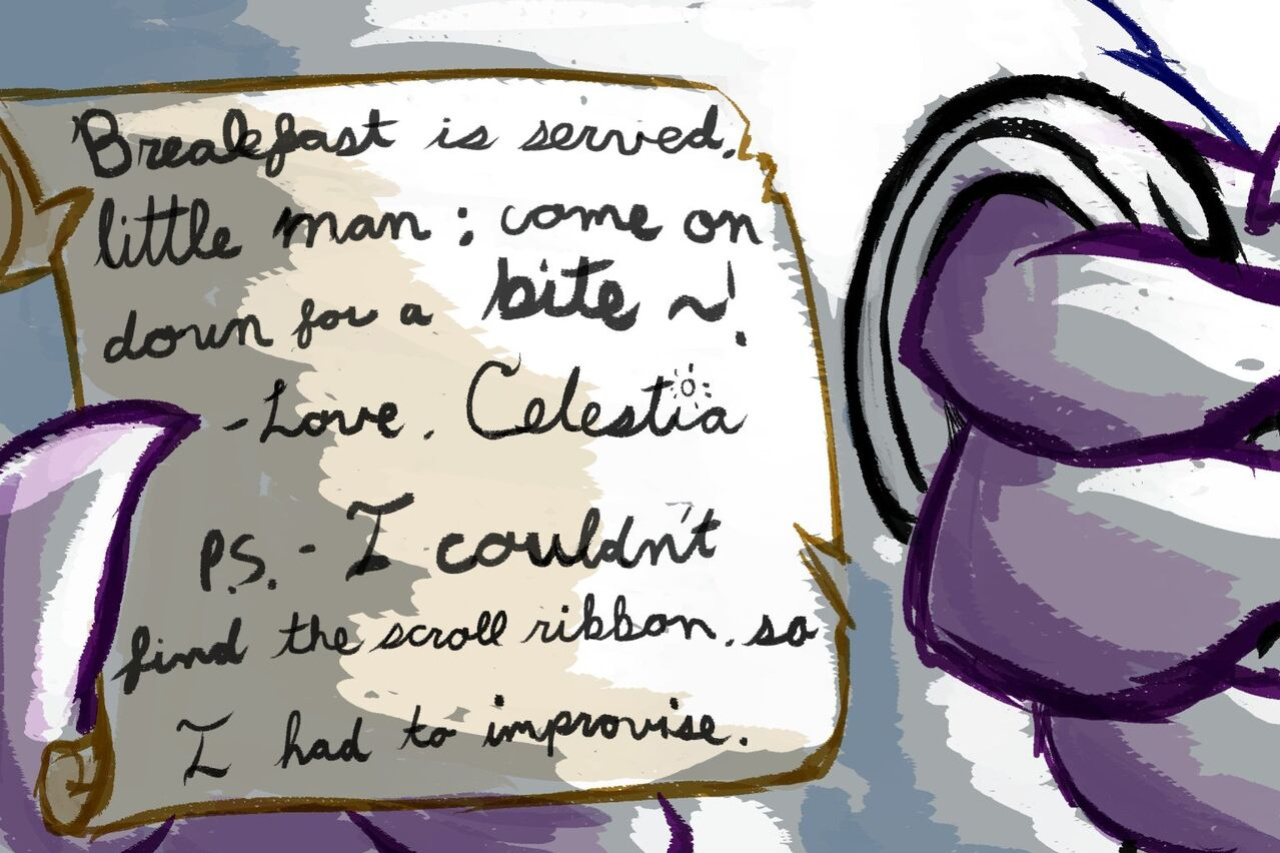 Breakfast is served,
little man; come on
down for a bite ~!
-Love, Celestia
P.S. - I couldn't
find the scroll ribbon, so
I had to improvise.